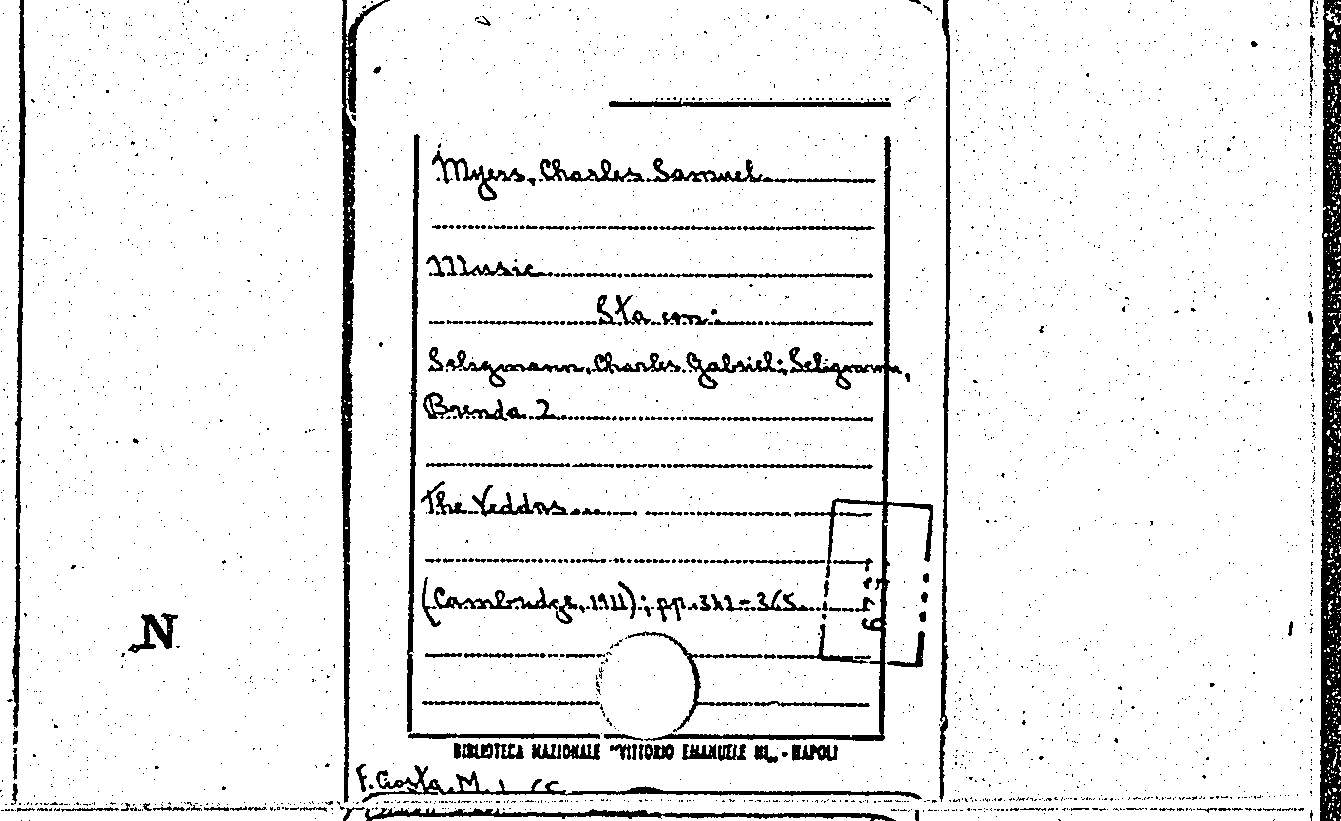 Myers, Charles Samuel
Music
Sta con:
Seligmann, Charles Gabriel; Seligmann,
Brenda Z.
The Veddas...
(Cambridge, 1911); pp. 341-365
N
BIBLIOTECA NAZIONALE "VITTORIO EMANUELE III" - NAPOLI
F. Costa. M.